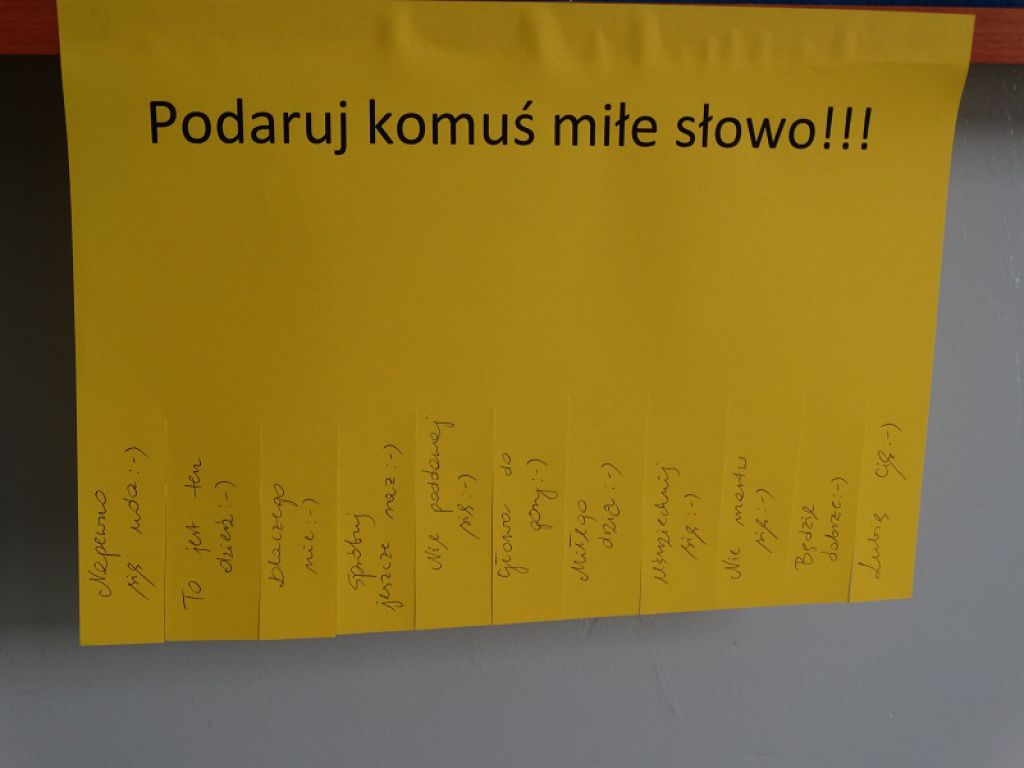 Podaruj komuś miłe słowo!!!
Napewno
się uda:-)
To jest ten
dzień:-)
Dlaczego
nie:-)
Spróbuj
jeszcze raz:-)
Nie poddawaj
się:-)
Głowa do
góry:-)
Miłego
dnia:-)
Uśmiechnij
się:-)
Nie martw
się:-)
Będzie
dobrze:-)
Lubię Cię:-)